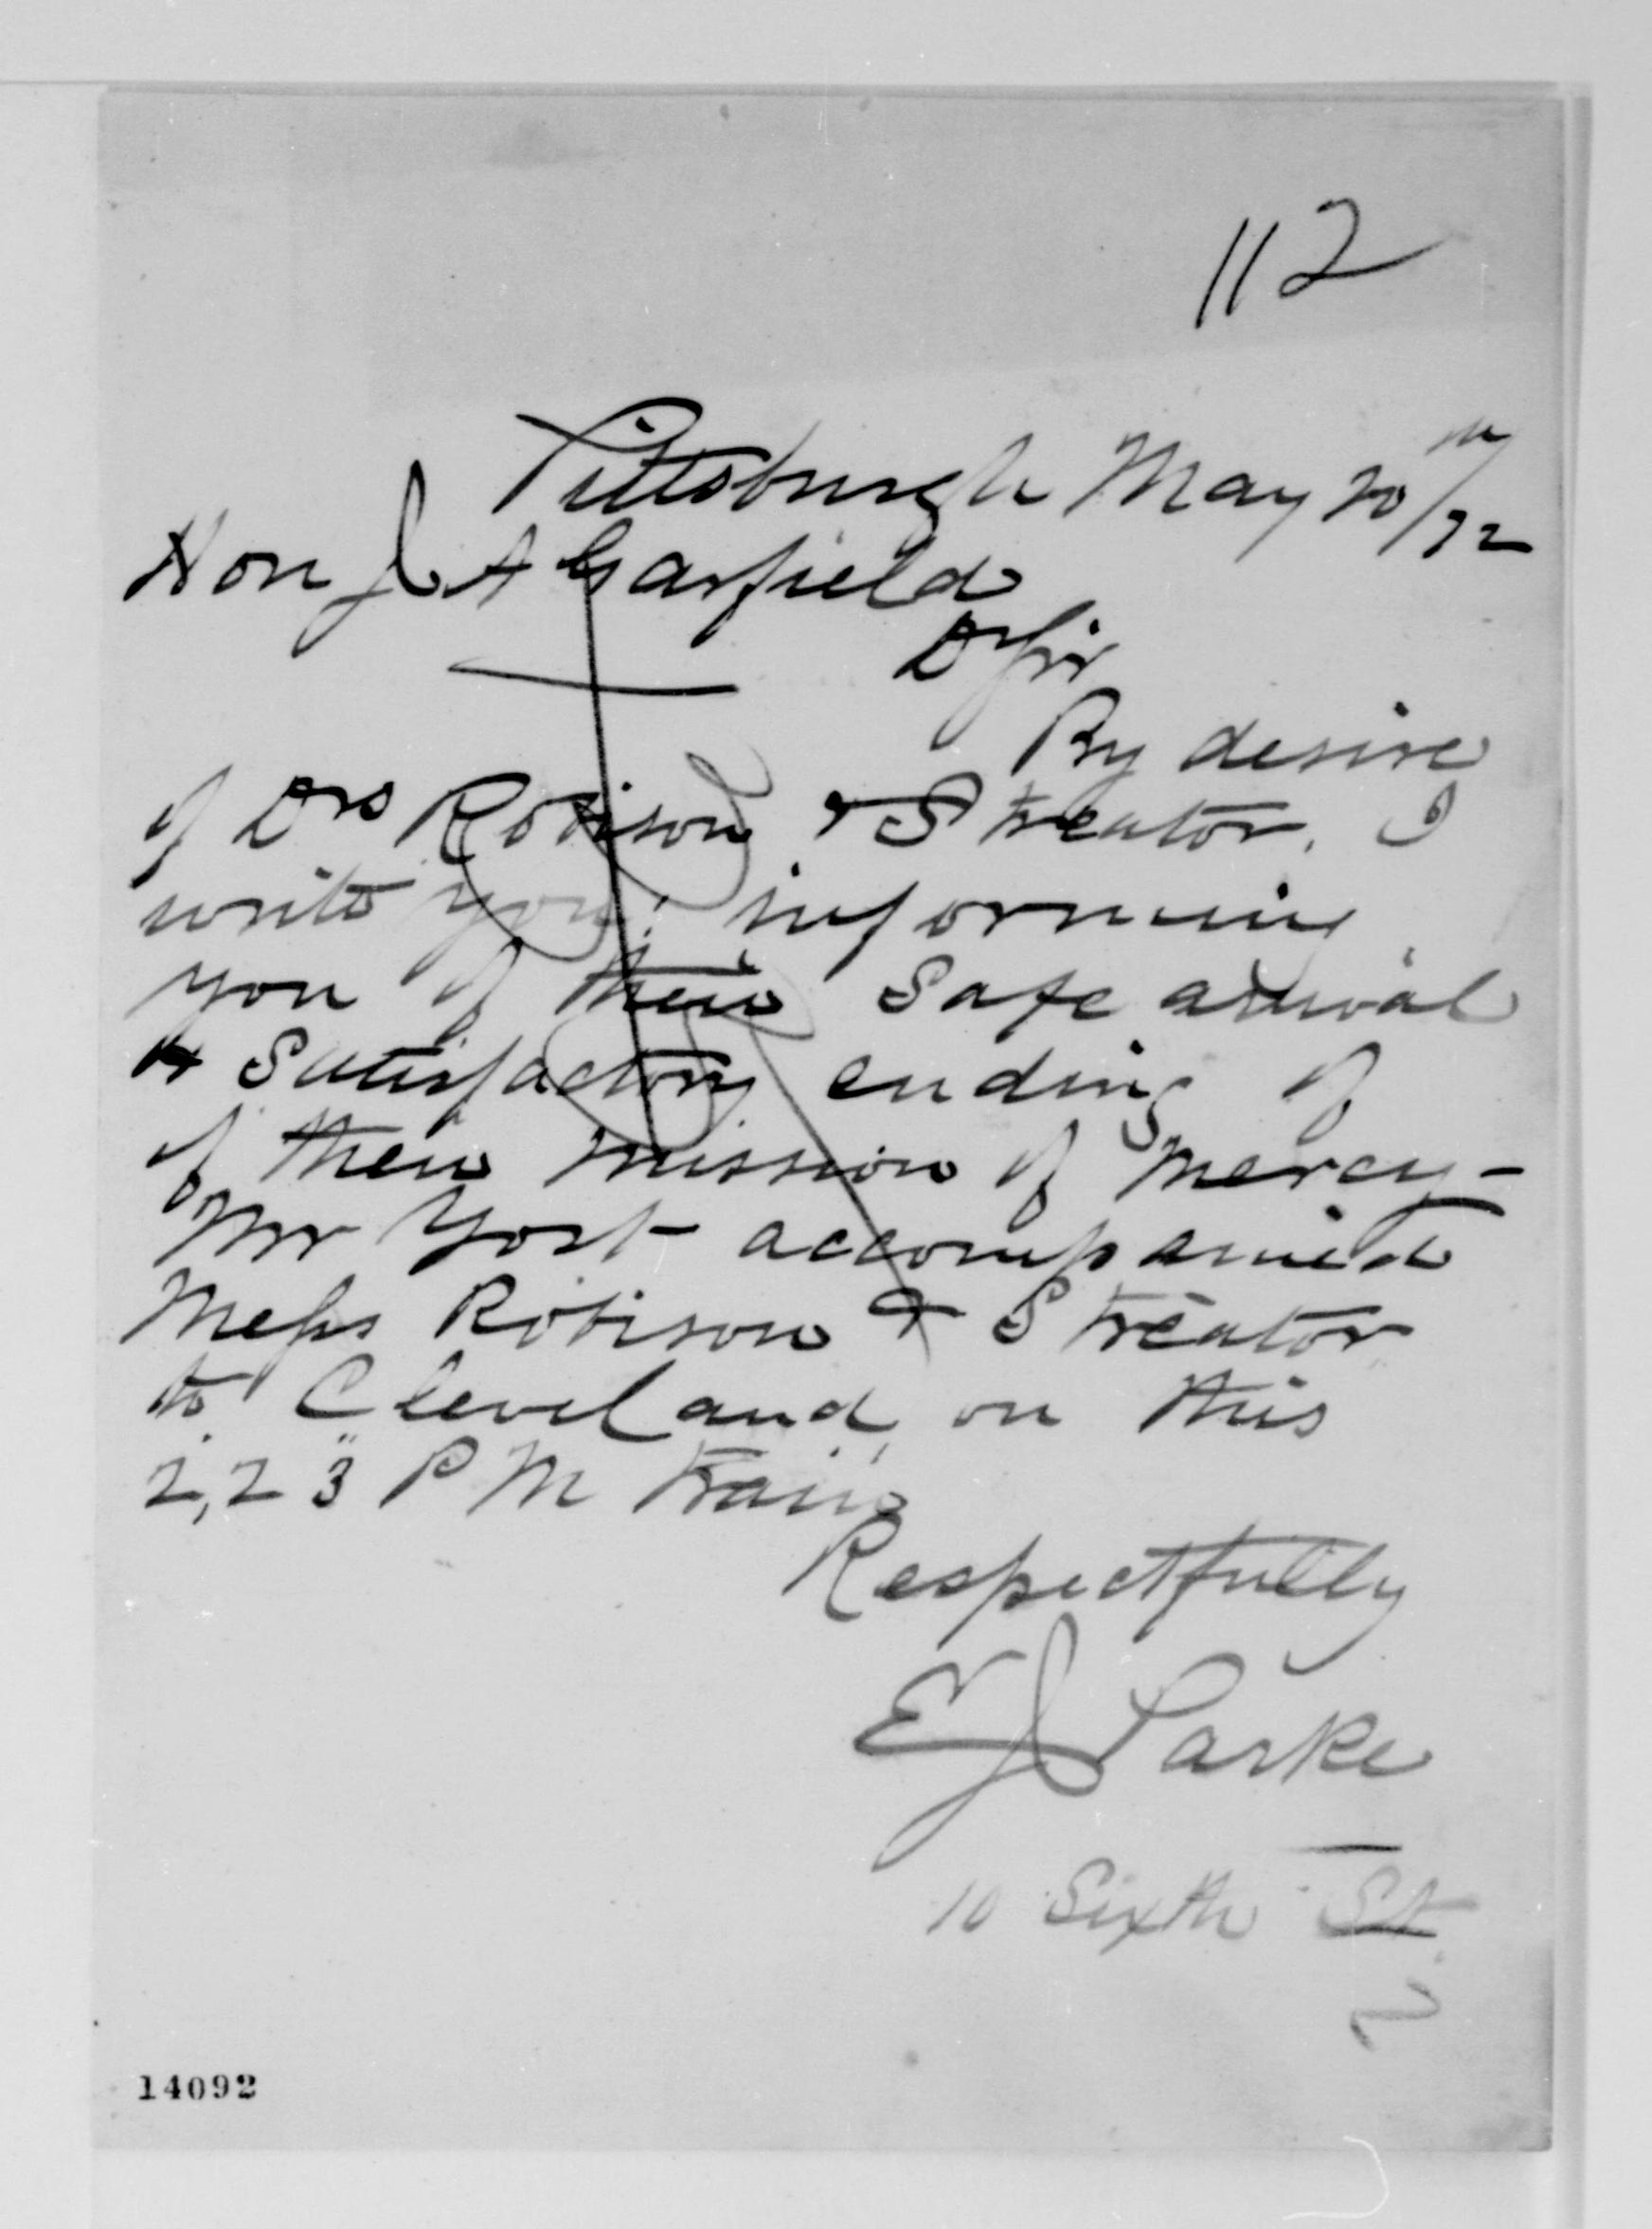 112
Pittsburgh May 20th/72
Hon J A Garfield
Dr Sir
By desire
of Drs Robison & Streator, I
write you; informing
you of their Safe arrival
& Satisfactory ending of
of their mission of mercy –
Mr York accompanied
Mess Robison & Streator
to Cleveland on this
2,23 P M train
Respectfully
E J Parke
10 Sixth St
14092